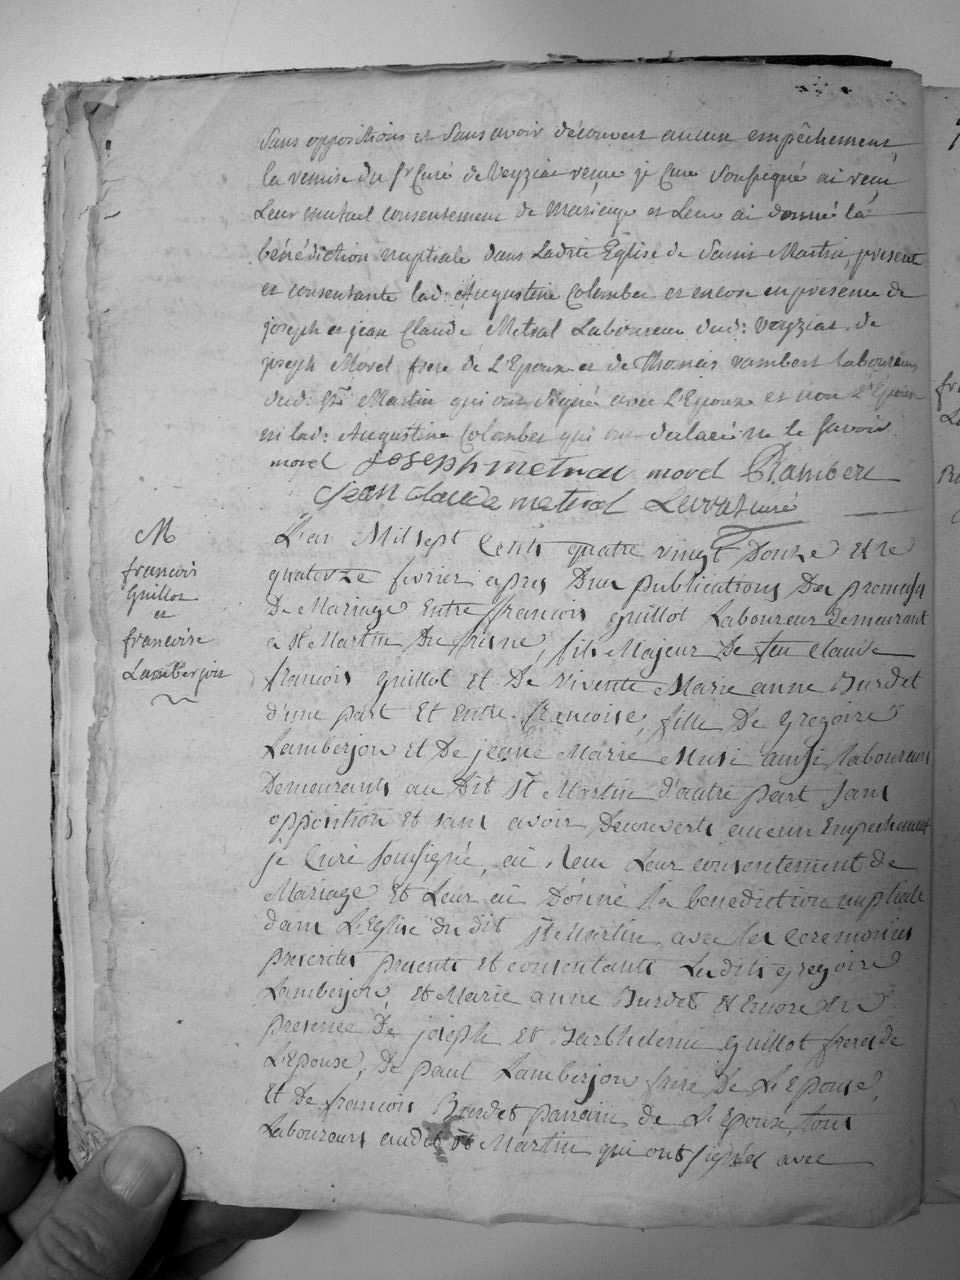 sans oppositions et sans avoir découvert aucun empêchement,
la remise du sr Curé de Veyziat reçue je Curé Soussigné ai reçu
Leur mutuel consentement de Mariage et Leur ai donné la
bénédiction nuptiale dans Ladite Eglise de Saint Martin, présente
et consentante lad: Augustine Colomber et encore en presence de
joseph et jean Claude Metral Laboureurs dud: Veyziat, de
joseph Morel frere de L'Epoux et de Thomas rambert laboureurs
dud: St Martin qui ont signé avec L'Epoux et non L'Epouse
ni lad: Augustine Colomber qui ont declaré ne le savoir
morel joseph metral morel Rambert
jean claude metral curé
M
francois
Guillot
et
francoise
Lamberjon
L'an Mil sept Cents quatre vingt Douze et le
quatorze fevrier apres Deux publications Des promesses
De Mariage Entre francois guillot Laboureur Demeurant
a St Martin Du frene, fils Majeur De feu claude
francois guillot Et De vivente Marie anne Burdet
d'une part Et Entre francoise, fille De gregoire
Lamberjon Et De jeane Marie Musi aussi laboureurs
Demeurants au Dit St Martin d'autre part sans
opposition Et sans avoir Decouverts aucun Empechement
je Curé soussigné, ai recu Leur consentement de
Mariage Et Leur ai Donné la benediction nuptiale
dans L'Eglise du dit St Martin avec les Ceremonies
prescrites presents Et consentants Ledits gregoire
Lamberjon, Et Marie anne Burdet Et Encore en
presence De joseph Et Barthelemi guillot freres de
L'Epouse, De paul Lamberjon frere De L'Epouse,
Et De francois Burdet parrain de L'Epoux, tous
Laboureurs audit St Martin qui ont signés avec